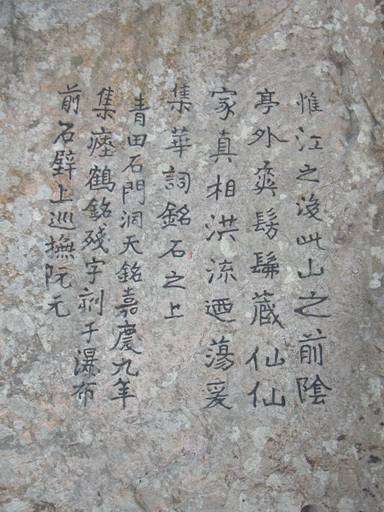 惟江之後此山之前陰
亭外爽髣髴藏仙仙
家真相洪流迺蕩爰
集華詞銘石之上
青田石門洞天銘嘉慶九年
集瘞鶴銘殘字刻于瀑布
前石壁上巡撫阮元